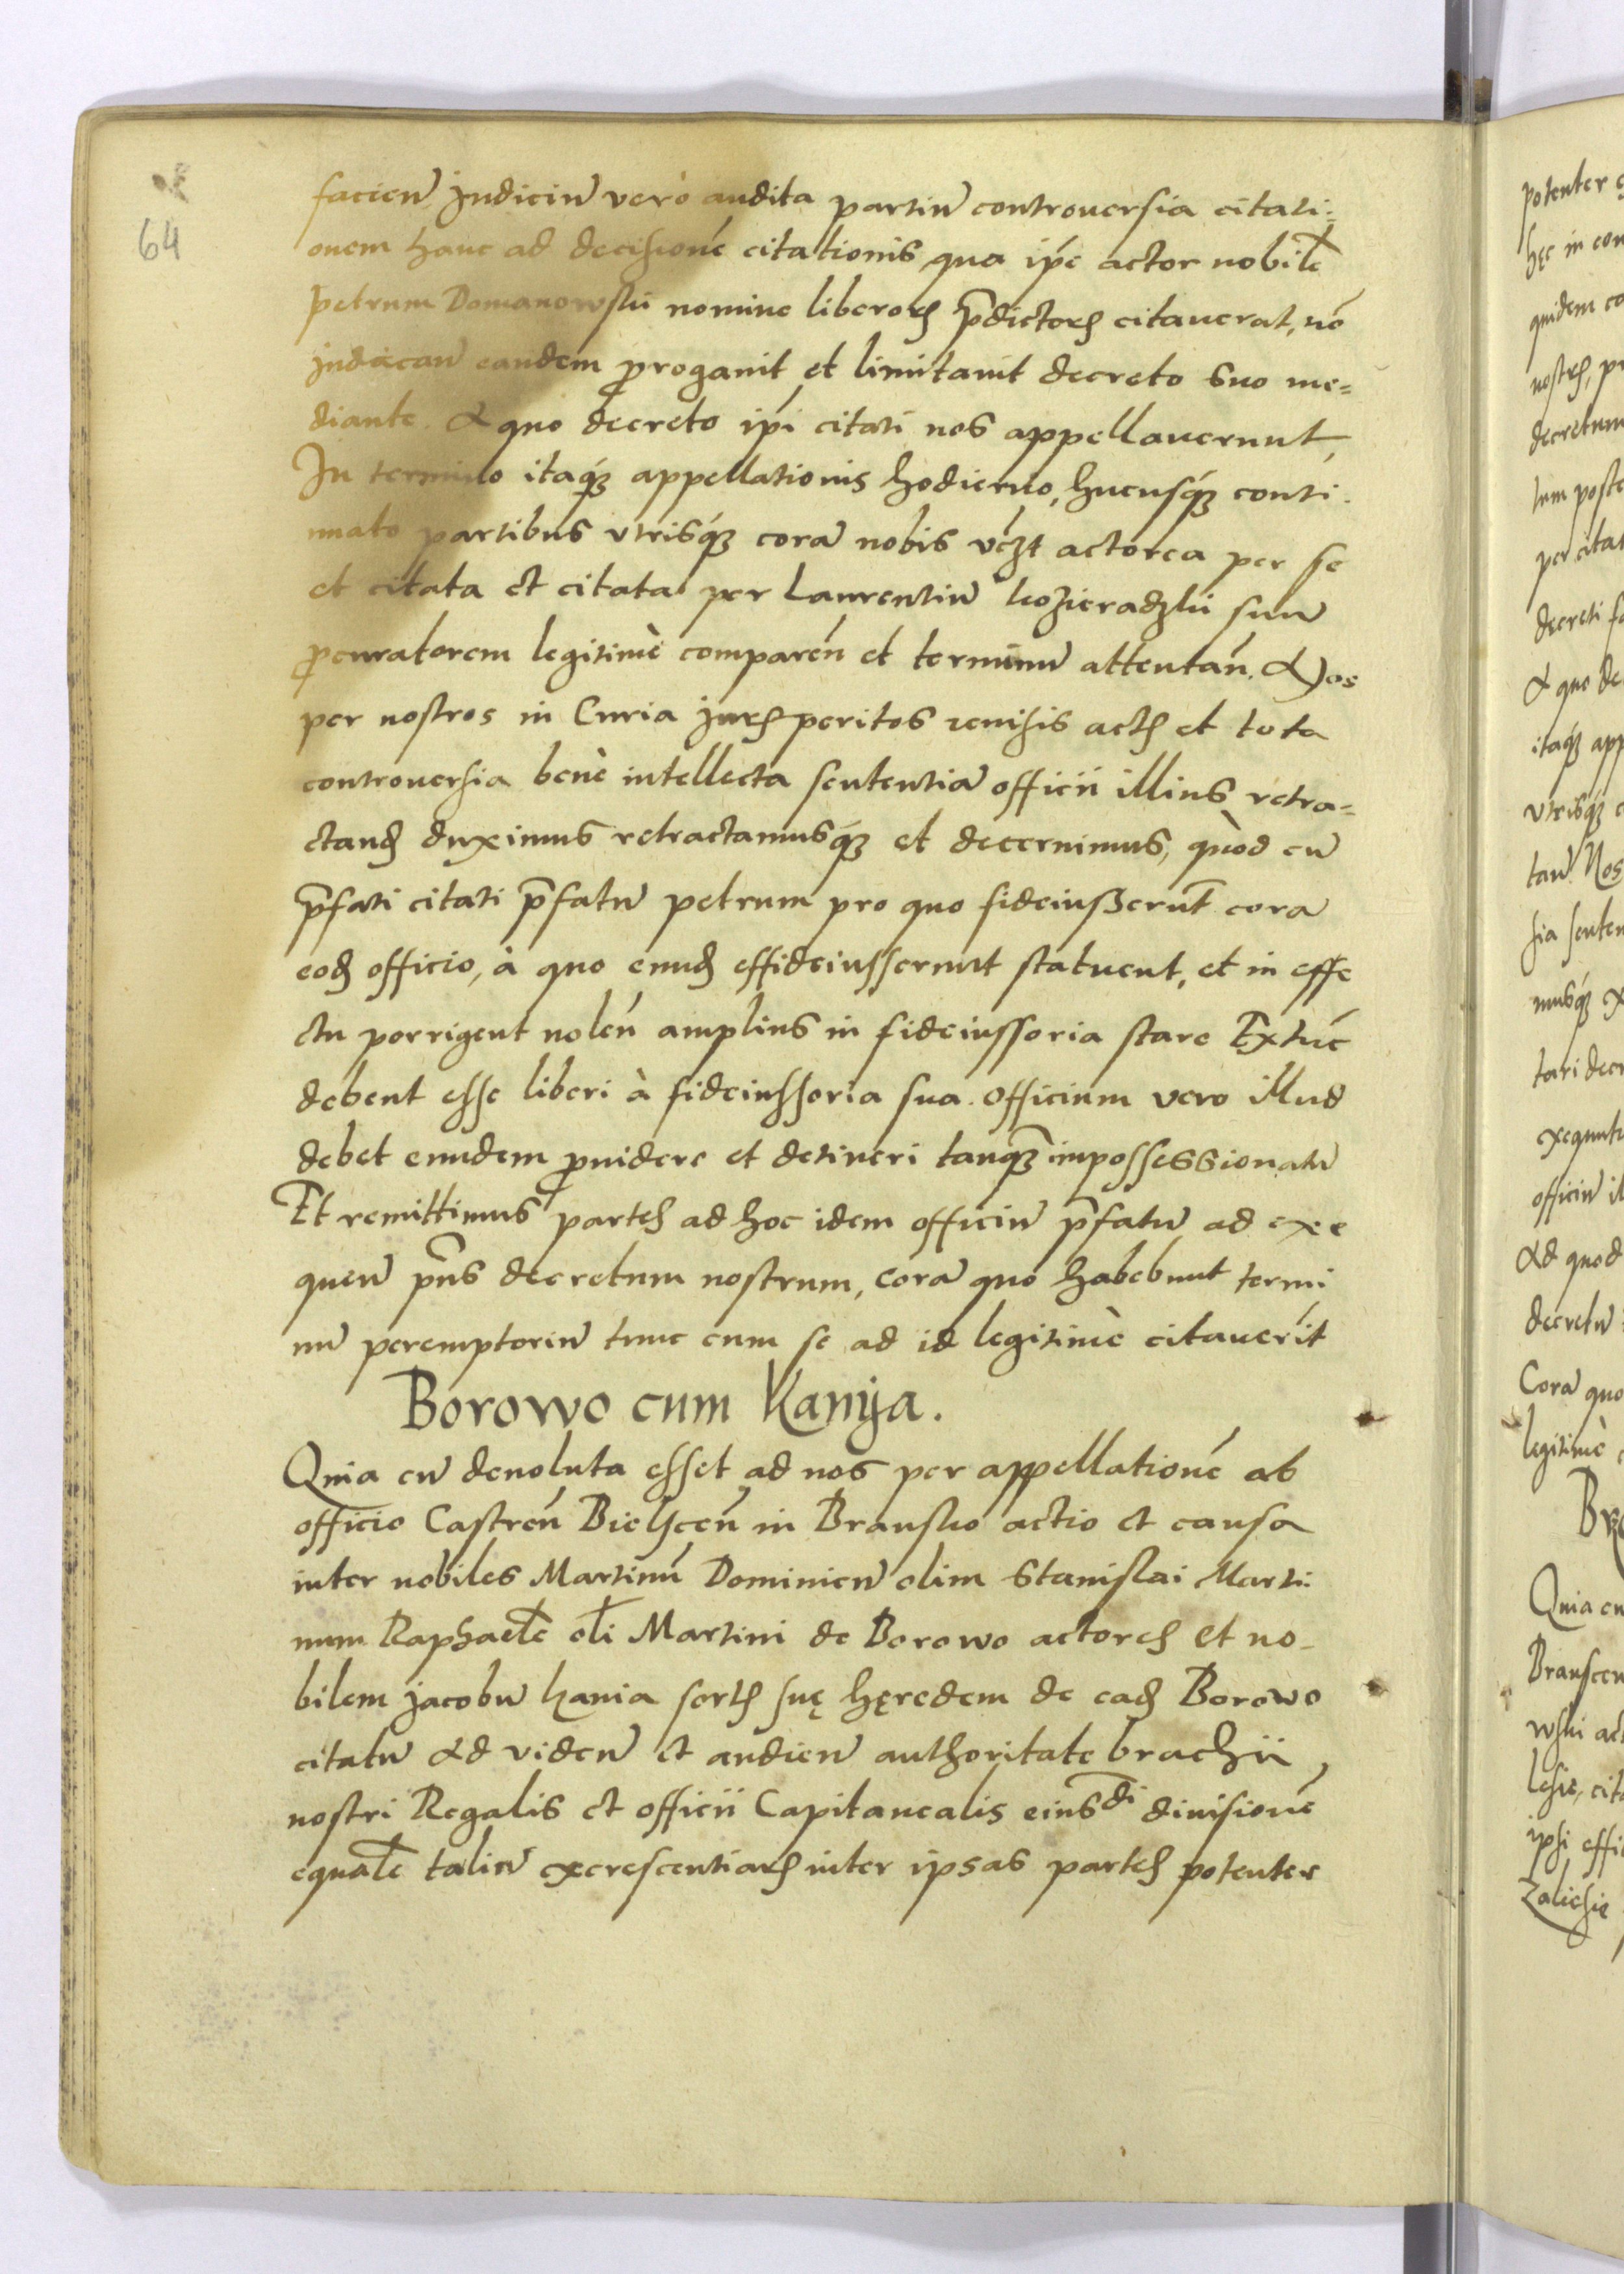 64
facien̄ Judiciū verò audita partiū controuersia citati:
onem hanc ad decisionē citationis qua ip̄e actor nobilē
petrum Domanowski nomine liberoꝝ p̄dictoꝝ citauerat, nō
judican̄ eandem ꝓrogauit et limitauit decreto suo me=
diante. A quo decreto ip̄i citati nos appellauerunt,
In termino itaqꝫ appellationis hodierno, hucusqꝫ conti.
nuato partibus vtrisqꝫ corā nobis vcꝫt actorea per se
et citata et citata per Laurentiū kozieradzki suū
ꝓcuratorem legitimè comparen̄ et terminū attentan̄. Nos
per nostros in Curia jurꝭperitos reuisis actꝭ et tota
controuersia benè intellecta sententiā officii illius retra=
ctandꝭ duximus retractamusqꝫ et decernimus, quòd cū
p̄fati citati p̄fatū petrum pro quo fideiußerūt corā
eodꝭ officio, à quo eundꝭ effideiusserunt statuent, et in effe
ctu porrigent nolen̄ amplius in fideiussoria stare Extūc
debent esse liberi à fideiussoria sua. Officium vero illud
debet eundem ꝓuidere et detineri tanqꝫ impossessionatū
Et remittimus partes ad hoc idem officiū p̄fatū ad exe
quen̄ p̄ns decretum nostrum, Corā quo habebunt termi
nū peremptoriū tunc cum se ad id legitimè citauerīt
Borowo cum Kanÿa.
Quia cū deuoluta esset ad nos per appellationē ab
officio Castren̄ Bielscen̄ in Bransko actio et causa
inter nobiles Martinū Dominicū olim Stanislai Marti:
num Raphaelē oli Martini de Borowo actores et no-
bilem jacobū kania sortꝭ suę hęredem de eadꝭ Borowo
citatū Ad viden̄ et audien̄ authoritate brachii
nostri Regalis et officii Capitanealis eiusdi diuisionē
equalē taliū excrescentiarꝭ inter ipsas partes potenter
potenter
hęc in con
quidem co
nostrꝭ, pr
decretum
tum poste
per citat
decreti
A quo de
itaqꝫ app
vtrisqꝫ c
tan̄. Nos
sia senten
musqꝫ
tari decr
exequutu
officiū il
Ad quod
decretū
Corā quo
legitimè
Quia cu
Branscen
wski act
ipsi effi